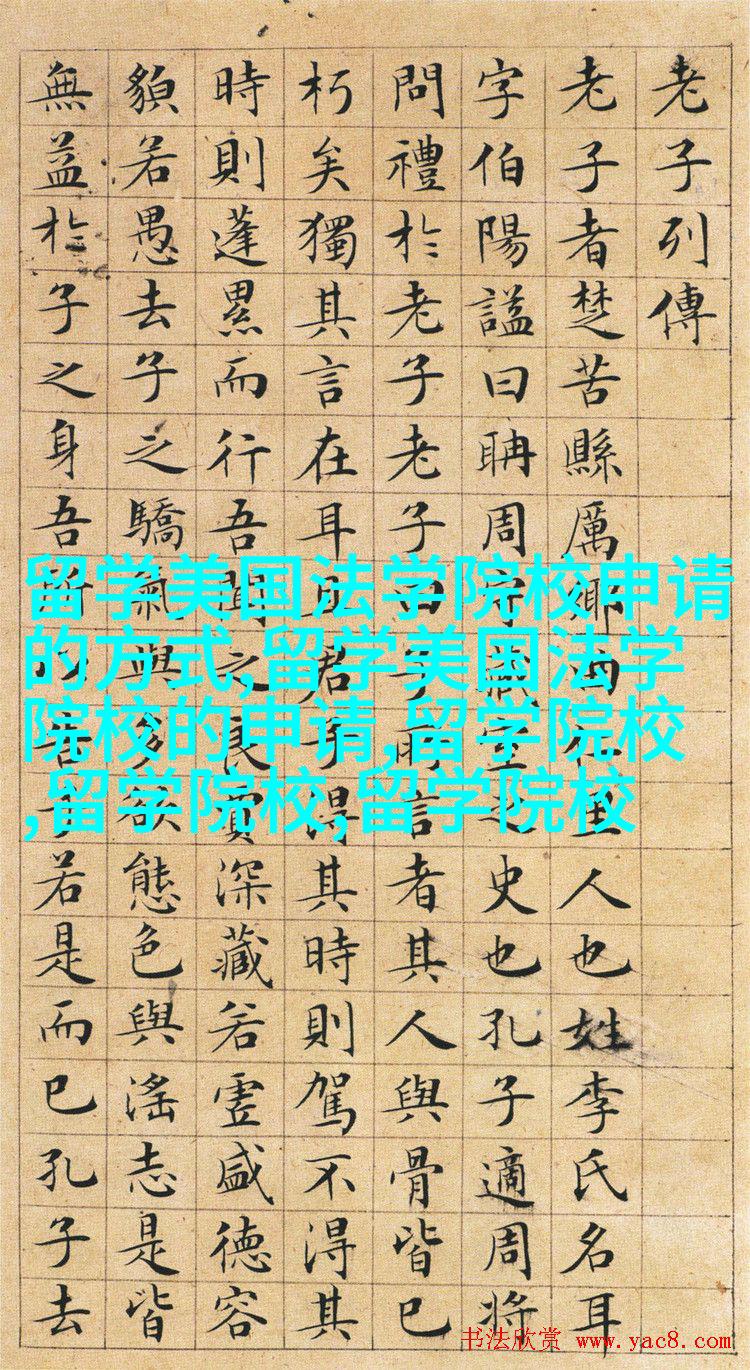 老子列傳
老子者楚苦縣厲鄉曲仁里人也姓李氏名耳
字伯陽謚曰聃周守藏室之史也孔子適周將
問禮於老子老子曰子所言者其人與骨皆已
朽矣獨其言在耳且君子得其時則駕不得其
時則蓬累而行吾聞之良賈深藏若虛盛德容
貌若愚去子之驕氣與多欲態色與淫志是皆
無益於子之身吾所以告子若是而已孔子去
留学美国法学院校申请
的方式,留学美国法学
院校的申请,留学院校
,留学院校,留学院校
书法欣赏 www.yac8.com